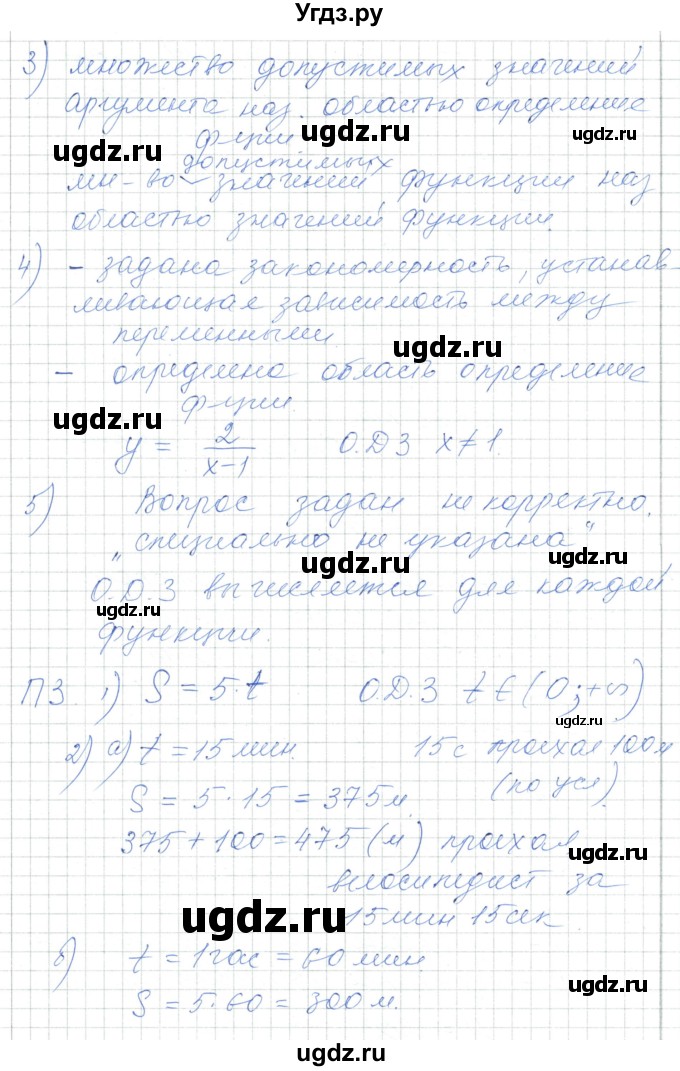 Угдз.ру
3) множество допустимых значений
аргумента наз. областью определение
ф-ции
допустимых
мн-во значений функции наз
областью значений функции.
4) – задана закономерность, устанав-
ливающая зависимость между
переменными.
– определена область определение
ф-ции.
y = 2/(x-1) О.Д.З x≠1.
5) Вопрос задан не корректно.
„специально не указана"
О.D.З вычисляется для каждой
функции.
ПЗ. 1) S = 5·t О.D.З t ∈ (0; +∞)
2) а) t = 15 мин. 15 с проехал 100 м
S = 5·15 = 375 м. (по усл).
375 + 100 = 475 (м) проехал
велосипедист за
15 мин 15 сек
б) t = 1 час = 60 мин.
S = 5·60 = 300 м.
ugdz.ru
ugdz.ru
ugdz.ru
ugdz.ru
ugdz.ru
ugdz.ru
ugdz.ru
ugdz.ru
ugdz.ru
ugdz.ru
ugdz.ru
ugdz.ru
ugdz.ru
ugdz.ru